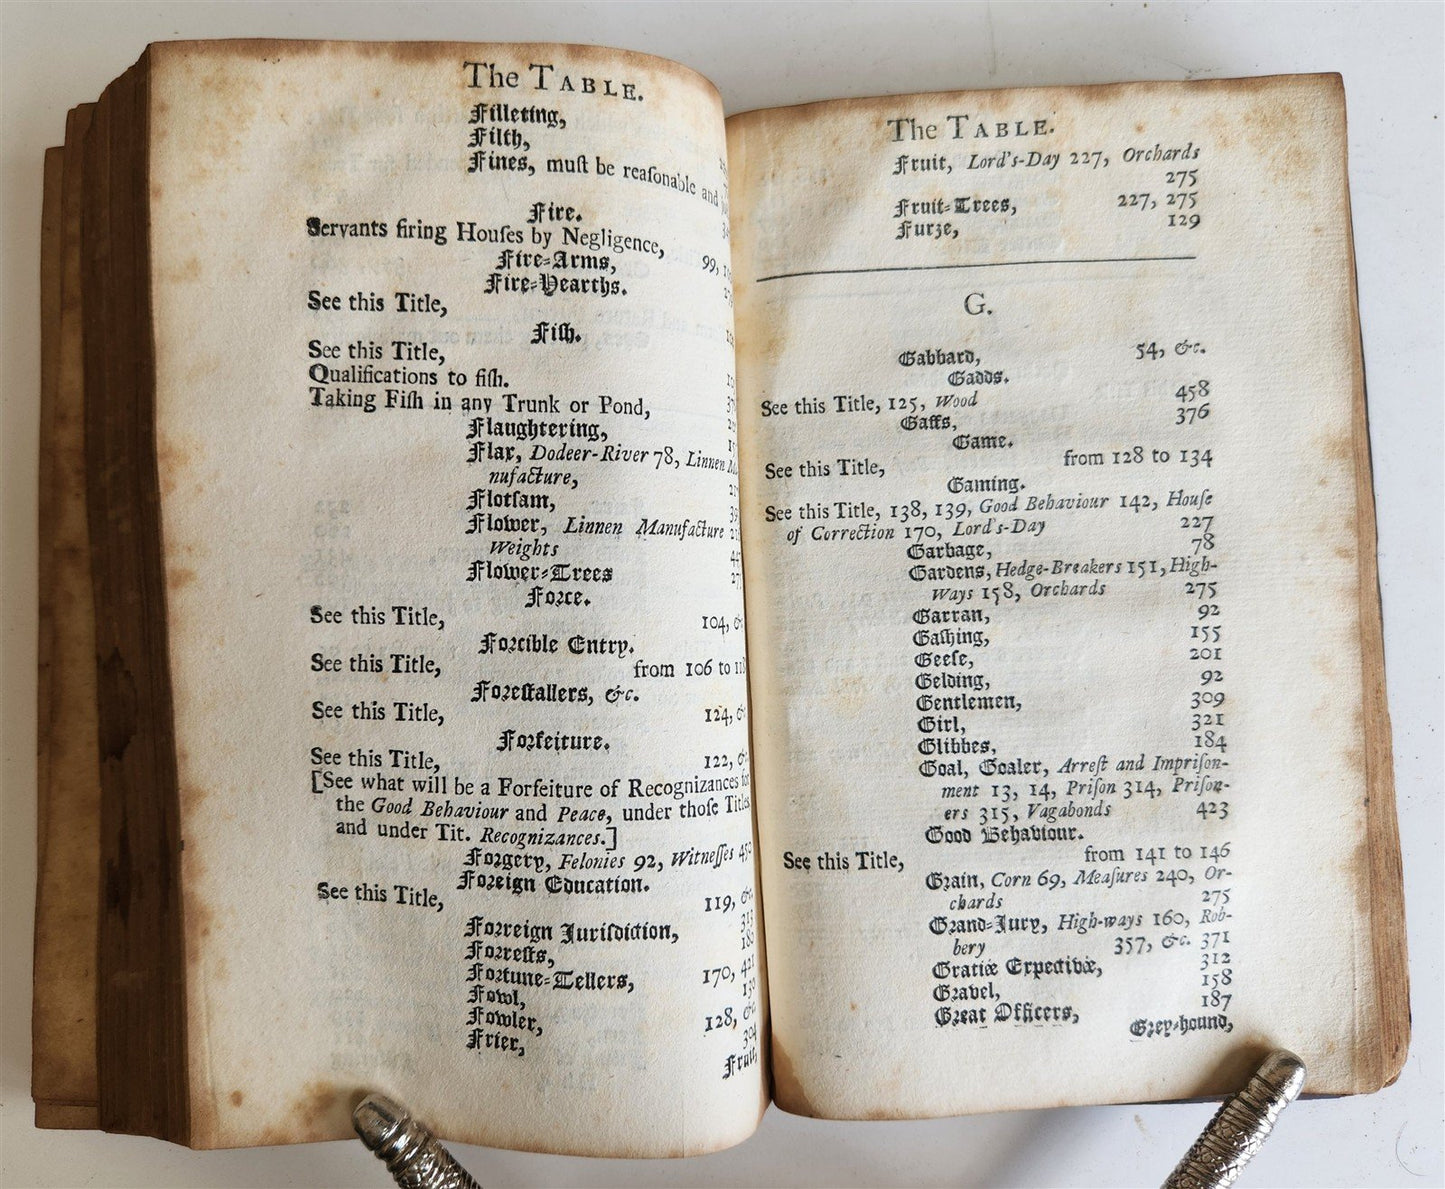 The TABLE.
Filleting,
Filth,
Fines, muſt be reaſonable and
Fire.
Servants firing Houſes by Negligence,
99,
Fire-Arms,
Fire-Hearths.
See this Title,
Fiſh.
See this Title,
Qualifications to fiſh.
Taking Fiſh in any Trunk or Pond,
Flaughtering,
Flax, Dodeer-River 78, Linnen
nufacture,
Flotſam,
Flower, Linnen Manufacture
Weights
Flower-Trees
Force.
See this Title, 104,
Forcible Entry.
See this Title, from 106 to
Foreſtallers, &c.
See this Title, 124,
Forfeiture.
See this Title, 122,
[See what will be a Forfeiture of Recognizances for
the Good Behaviour and Peace, under thoſe Titles
and under Tit. Recognizances.]
Forgery, Felonies 92, Witneſſes
Foreign Education.
See this Title, 119, &c.
Forreign Juriſdiction,
Forreſts,
Fortune-Tellers, 170, 421
Fowl,
Fowler, 128, &c.
Frier, 304
Fruit,
The TABLE.
Fruit, Lord's-Day 227, Orchards
275
Fruit-Trees, 227, 275
Furze, 129
G.
Gabbard, 54, &c.
Gadds.
See this Title, 125, Wood 458
Gaffs, 376
Game.
See this Title, from 128 to 134
Gaming.
See this Title, 138, 139, Good Behaviour 142, Houſe
of Correction 170, Lord's-Day 227
Garbage, 78
Gardens, Hedge-Breakers 151, High-
Ways 158, Orchards 275
Garran, 92
Gaſhing, 155
Geeſe, 201
Gelding, 92
Gentlemen, 309
Girl, 321
Glibbes, 184
Goal, Goaler, Arreſt and Impriſon-
ment 13, 14, Priſon 314, Priſon-
ers 315, Vagabonds 423
Good Behaviour.
See this Title, from 141 to 146
Grain, Corn 69, Meaſures 240, Or-
chards 275
Grand-Jury, High-ways 160, Rob-
bery 357, &c. 371
Gratiæ Expectivæ, 312
Gravel, 158
Great Officers, 187
Grey-hound,